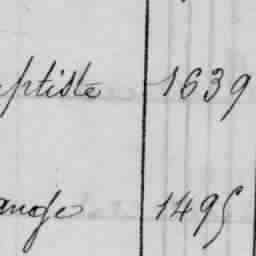 aptiste 1639
ange 1495